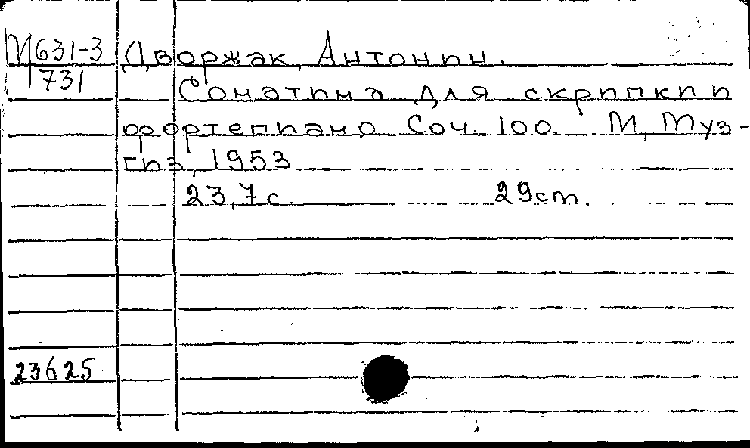 М631-3 Дворжак, Антонин.
731 Сонатина для скрипки и
фортепиано Соч. 100. М, Муз-
гиз, 1953
23,7с 29см.
23625